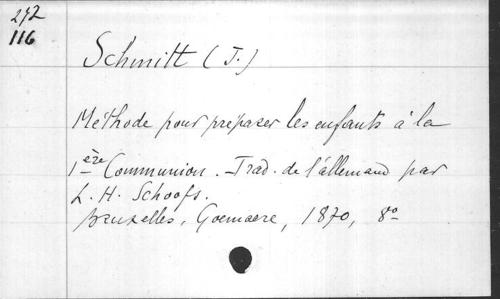 272
116
Schmitt (J.)
Méthode pour preparer les enfants à la
1ère Communion. Trad. de l'allemand par
L. H. Schoofs.
Bruxelles, Goemaere, 1870, 8o